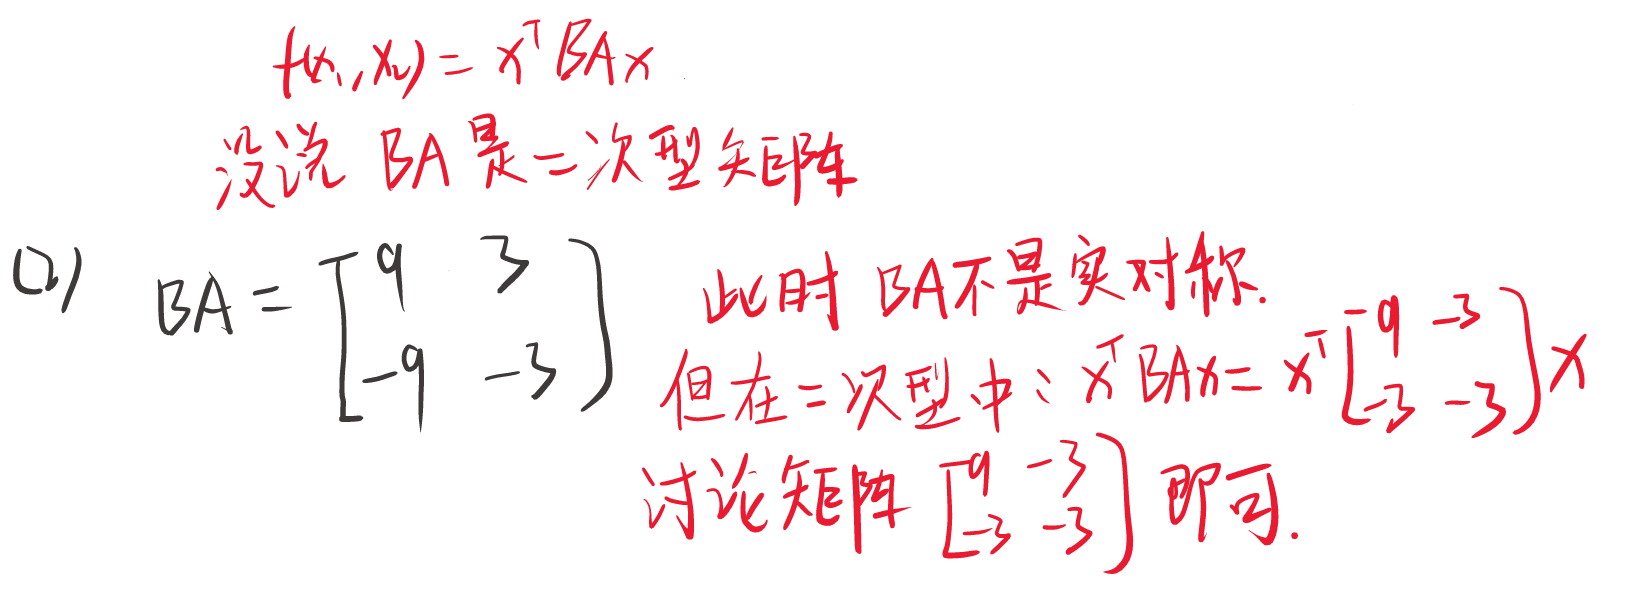 f(x₁,x₂)=xᵀBAx
没说 BA是二次型矩阵
(2) BA = [9 3; -9 -3] 此时 BA不是实对称.
但在二次型中: xᵀBAx = xᵀ[9 -3; -3 -3]x
讨论矩阵 [9 -3; -3 -3] 即可.